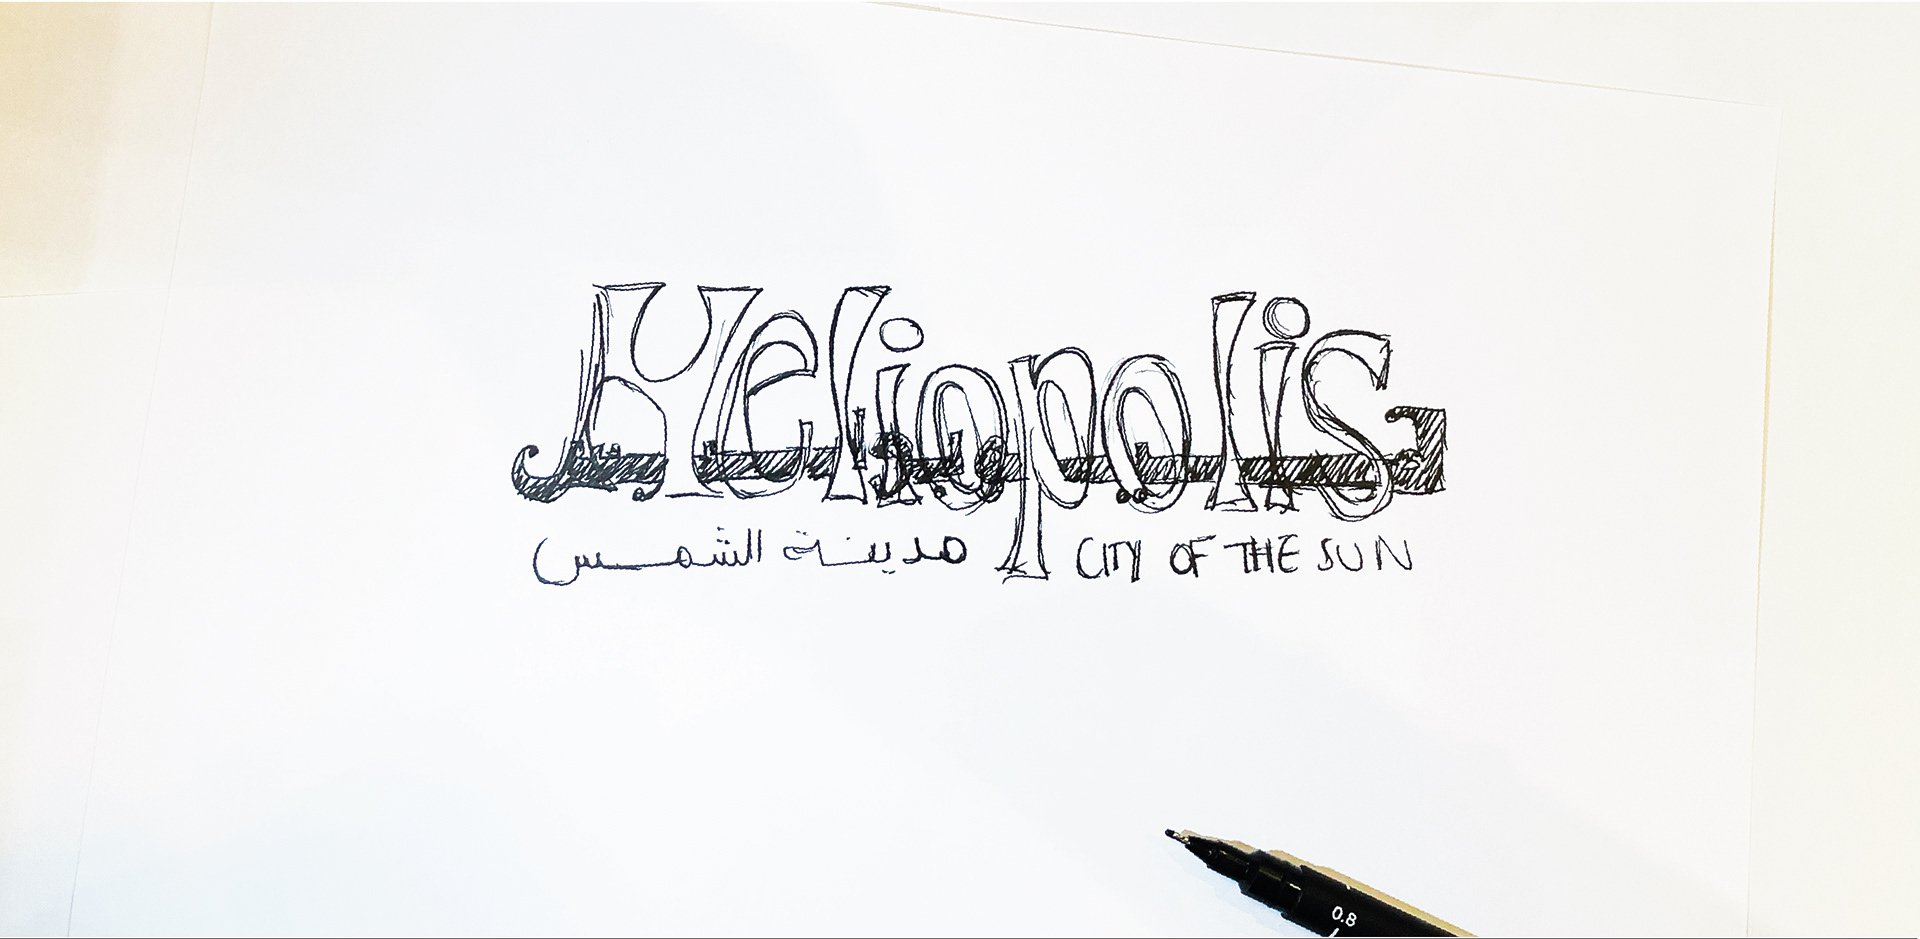 Heliopolis
هليوبوليس
مدينة الشمس CITY OF THE SUN
0.8